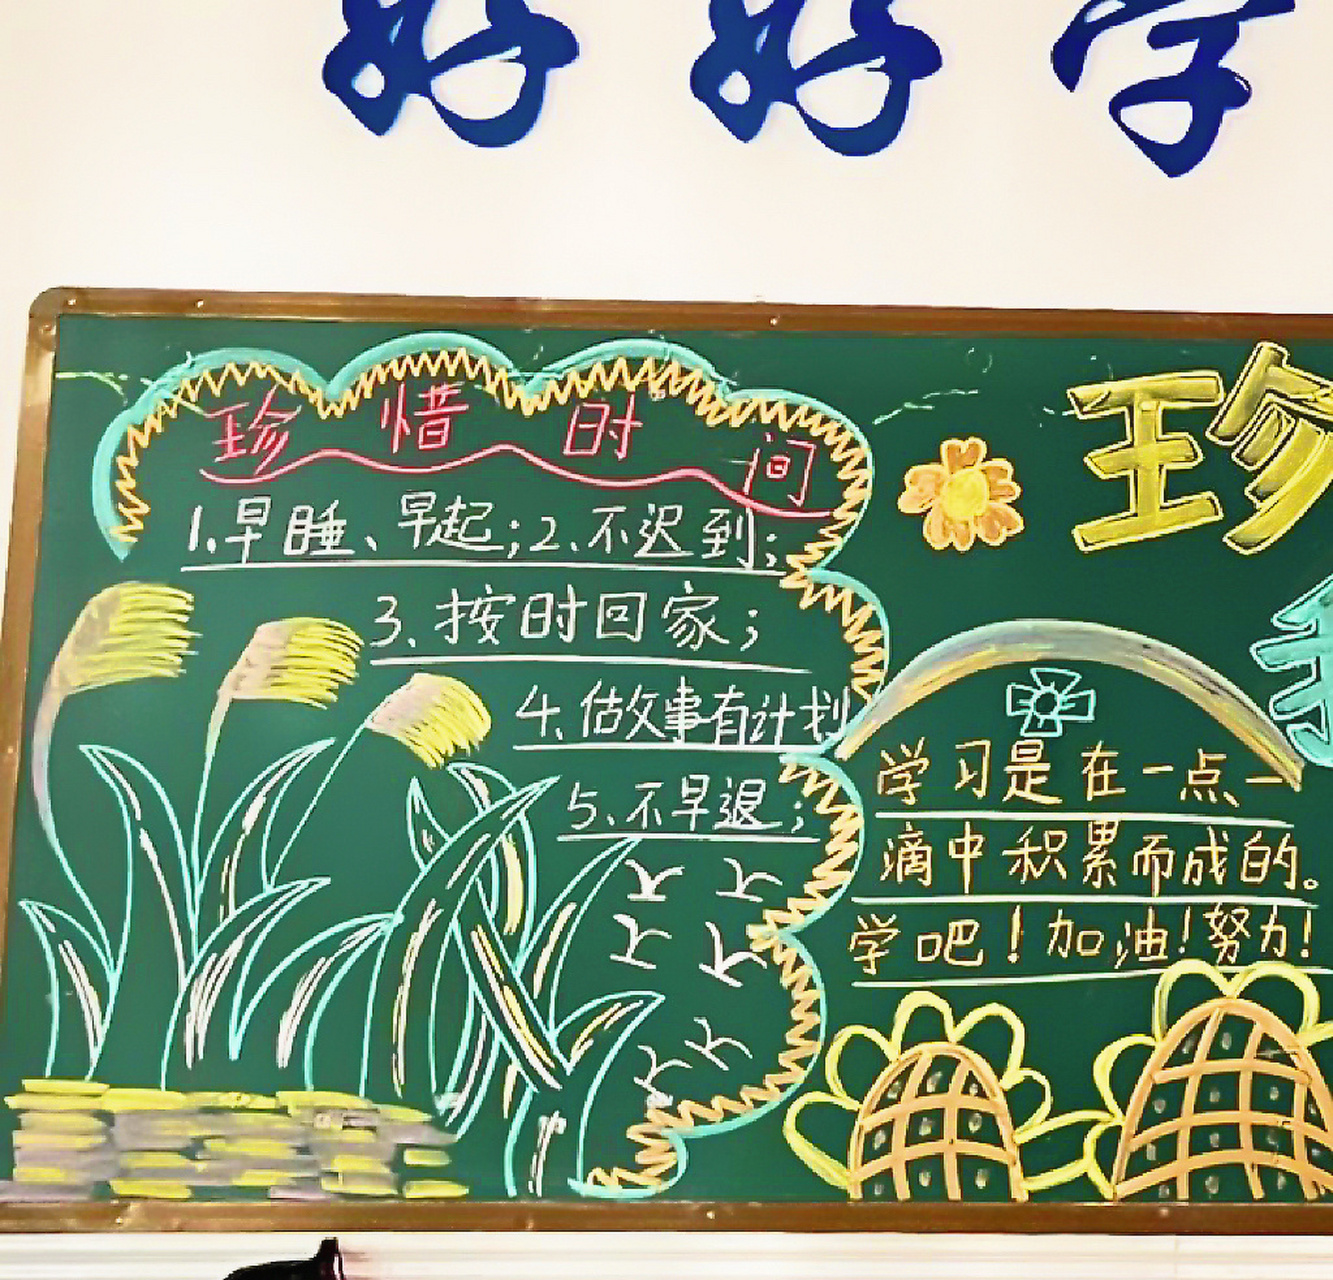 好好学
珍惜时间
1.早睡、早起；2.不迟到；
3、按时回家；
4、做事有计划
5、不早退；
珍
学习是在一点一
滴中积累而成的。
学吧！加油！努力！